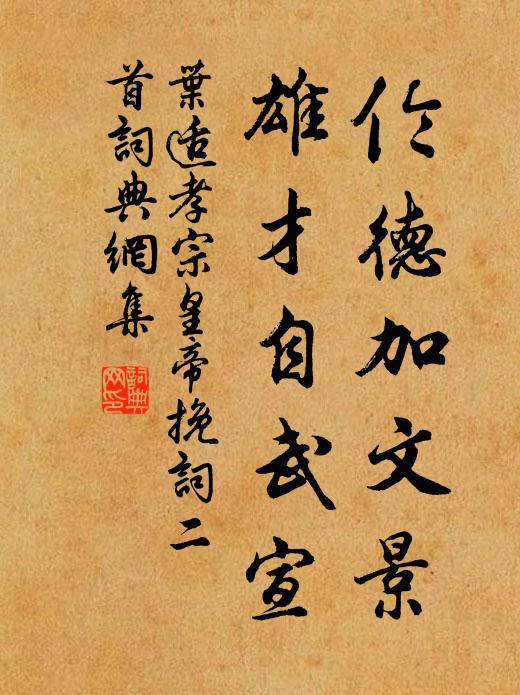 儉德加文景
雄才自武宣
葉適孝宗皇帝挽詞二
首詞典網集
詞典
网印